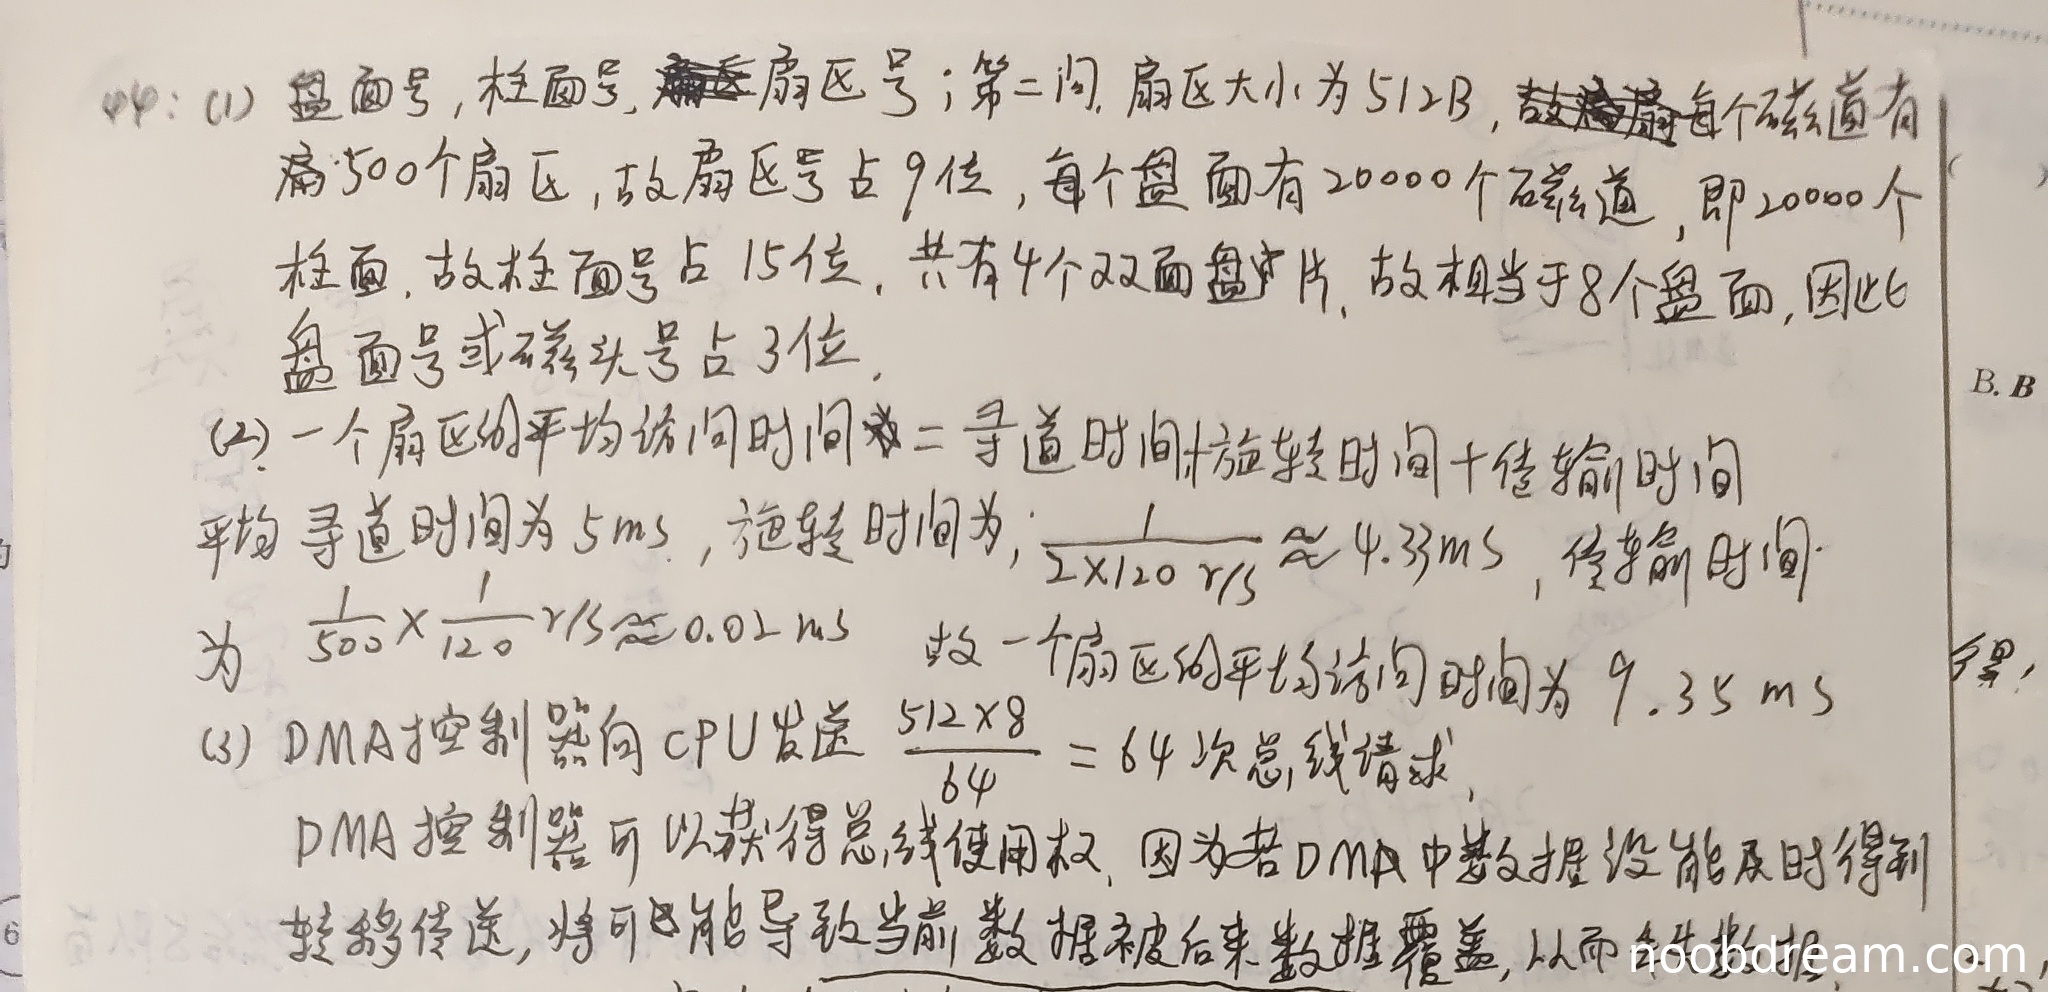 44: (1) 盘面号,柱面号,扇区号;第二问,扇区大小为512B,每个磁道有
500个扇区,故扇区号占9位,每个盘面有20000个磁道,即20000个
柱面,故柱面号占15位,共有4个双面盘片,故相当于8个盘面,因此
盘面号或磁头号占3位.
(2) 一个扇区的平均访问时间=寻道时间+旋转时间+传输时间
平均寻道时间为5ms,旋转时间为, 1/(2×120 r/s) ≈ 4.33ms, 传输时间
为 1/500 × 1/120 r/s ≈ 0.02ms 故一个扇区的平均访问时间为9.35ms
(3) DMA控制器向CPU发送 (512×8)/64 = 64次总线请求,
DMA控制器可以获得总线使用权,因为若DMA中数据没能及时得到
转移传送,将可能导致当前数据被后来数据覆盖,从而
B. B
得,
6
noobdream.com